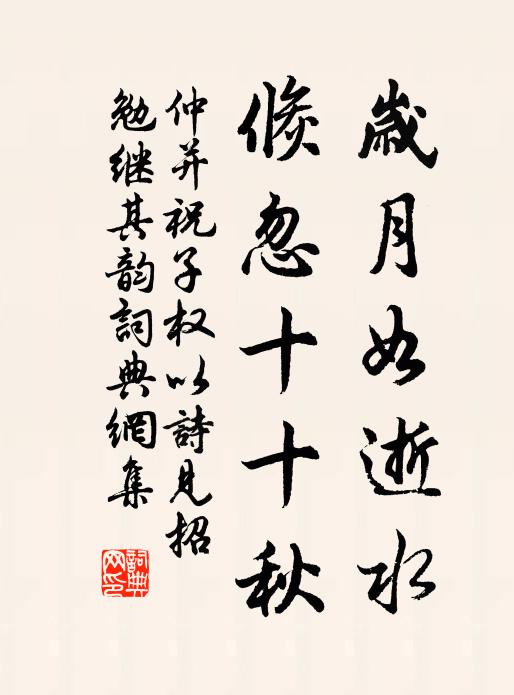 歲月如逝水
倏忽十十秋
仲并祝子权以詩見招
勉继其韵詞典網集
詞典网印